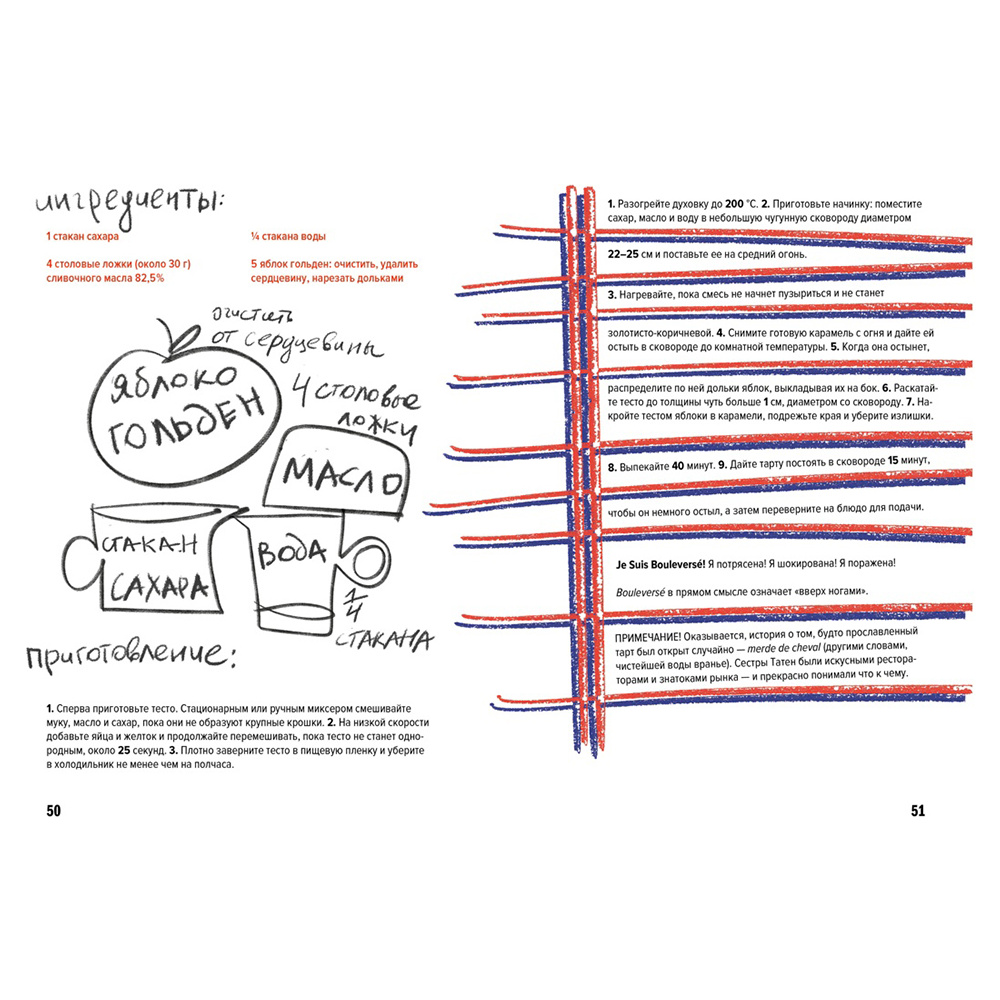 ингредиенты:
1 стакан сахара
¼ стакана воды
4 столовые ложки (около 30 г)
сливочного масла 82,5%
5 яблок гольден: очистить, удалить
сердцевину, нарезать дольками
очистить
от сердцевины
ЯБЛОКО
ГОЛЬДЕН
4 столовые
ложки
МАСЛО
СТАКАН
САХАРА
ВОДА
1/4
СТАКАНА
приготовление:
1. Сперва приготовьте тесто. Стационарным или ручным миксером смешивайте
муку, масло и сахар, пока они не образуют крупные крошки. 2. На низкой скорости
добавьте яйца и желток и продолжайте перемешивать, пока тесто не станет одно-
родным, около 25 секунд. 3. Плотно заверните тесто в пищевую пленку и уберите
в холодильник не менее чем на полчаса.
50
1. Разогрейте духовку до 200 °C. 2. Приготовьте начинку: поместите
сахар, масло и воду в небольшую чугунную сковороду диаметром
22–25 см и поставьте ее на средний огонь.
3. Нагревайте, пока смесь не начнет пузыриться и не станет
золотисто-коричневой. 4. Снимите готовую карамель с огня и дайте ей
остыть в сковороде до комнатной температуры. 5. Когда она остынет,
распределите по ней дольки яблок, выкладывая их на бок. 6. Раскатай-
те тесто до толщины чуть больше 1 см, диаметром со сковороду. 7. На-
кройте тестом яблоки в карамели, подрежьте края и уберите излишки.
8. Выпекайте 40 минут. 9. Дайте тарту постоять в сковороде 15 минут,
чтобы он немного остыл, а затем переверните на блюдо для подачи.
Je Suis Bouleversé! Я потрясена! Я шокирована! Я поражена!
Bouleversé в прямом смысле означает «вверх ногами».
ПРИМЕЧАНИЕ! Оказывается, история о том, будто прославленный
тарт был открыт случайно — merde de cheval (другими словами,
чистейшей воды вранье). Сестры Татен были искусными рестора-
торами и знатоками рынка — и прекрасно понимали что к чему.
51